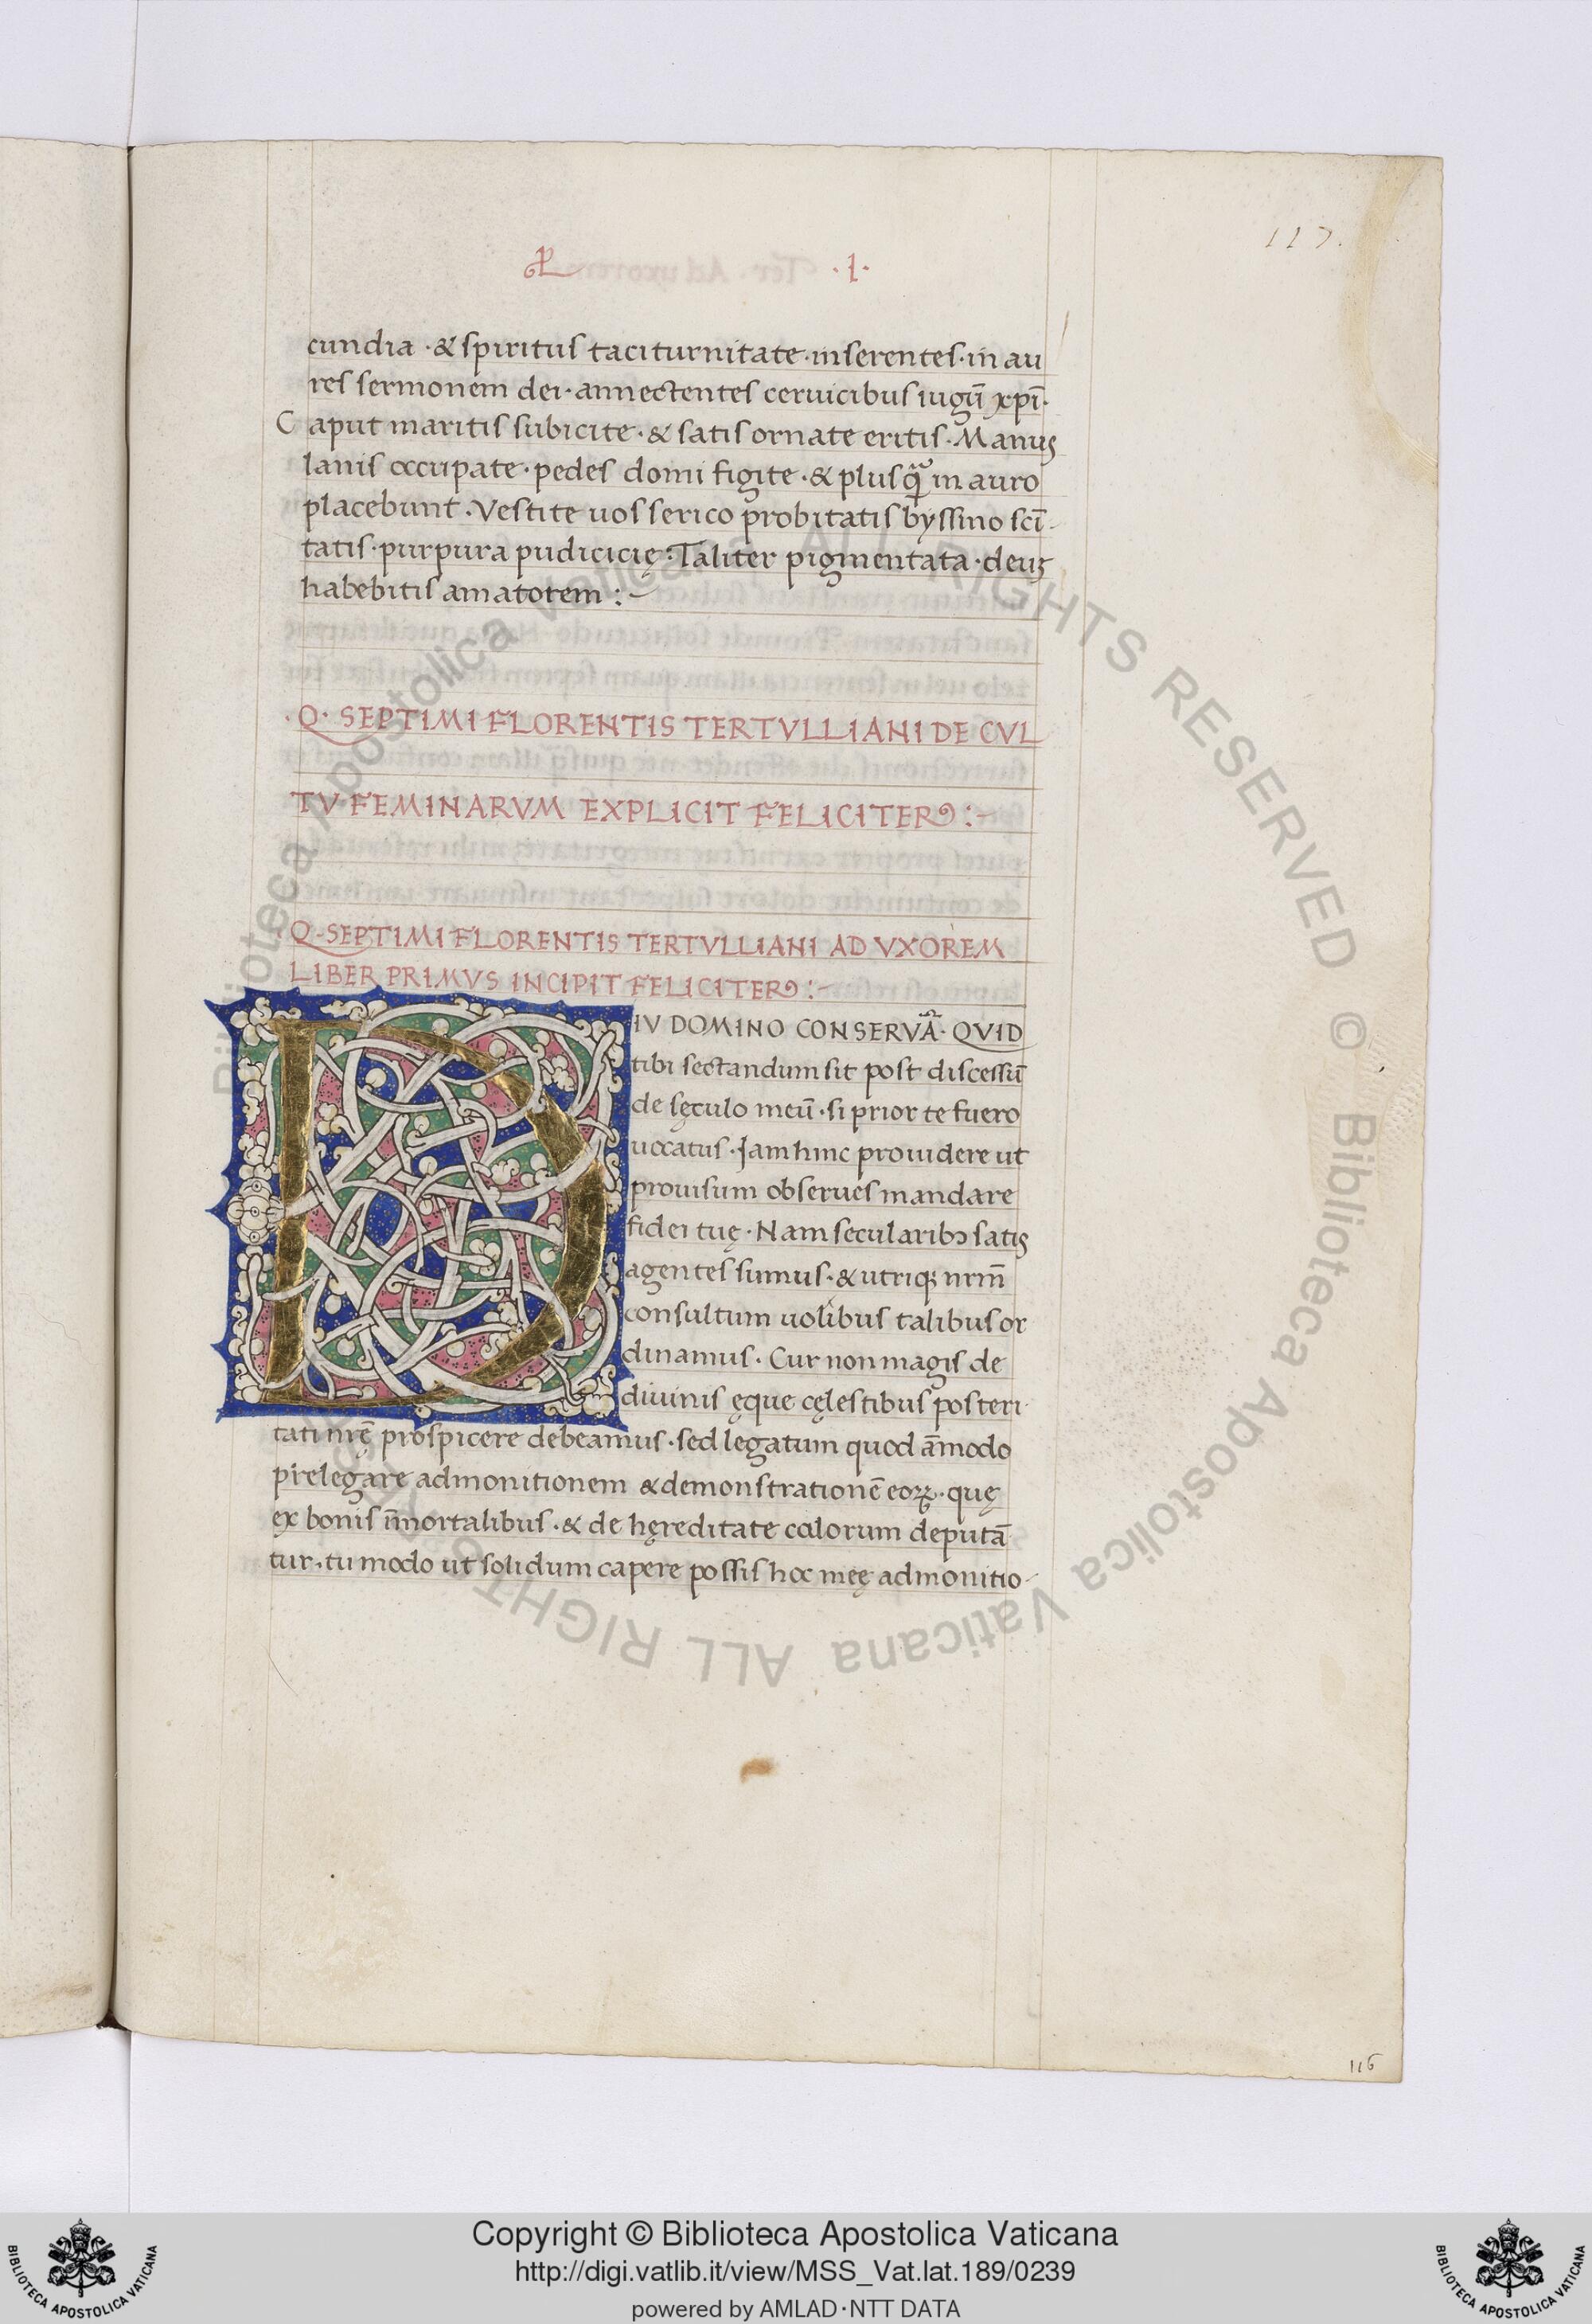 117.
·1·
cundia · & spiritus taciturnitate · inserentes · in au
res sermonem dei · annectentes ceruicibus iugũ xp̃i ·
Caput maritis subicite · & satis ornate eritis · Manus
lanis occupate · pedes domi figite · & plus q̃ in auro
placebunt · Vestite uos serico probitatis byssino sc̃i-
tatis · purpura pudicicię : Taliter pigmentata · deuȝ
habebitis amatorem :~
· Q · SEPTIMI FLORENTIS TERTVLLIANI DE CVL
TV FEMINARVM EXPLICIT FELICITER :~
Q · SEPTIMI FLORENTIS TERTVLLIANI AD VXOREM
LIBER PRIMVS INCIPIT FELICITER :~
DIV DOMINO CONSERVÃ · QVID
tibi sectandum sit post discessũ
de sęculo meũ · si prior te fuero
uocatus · Jam hinc prouidere ut
prouisum obserues mandare
fidei tuę · Nam secularibꝫ satis
agentes sumus · & utriqꝫ nrm̃
consultum uolibus talibus or
dinamus · Cur non magis de
diuinis ęque cęlestibus posteri
tati nrę̃ prospicere debeamus · sed legatum quod ãmodo
prelegare admonitionem & demonstrationẽ eoꝝ · quę
ex bonis ĩmortalibus · & de hęreditate cœlorum deputã
tur · tu modo ut solidum capere possis hoc meę admonitio-
116
Biblioteca Apostolica Vaticana ALL RIGHTS RESERVED © Biblioteca Apostolica Vaticana ALL RIGHTS
Copyright © Biblioteca Apostolica Vaticana
http://digi.vatlib.it/view/MSS_Vat.lat.189/0239
powered by AMLAD·NTT DATA
BIBLIOTECA APOSTOLICA VATICANA
BIBLIOTECA APOSTOLICA VATICANA